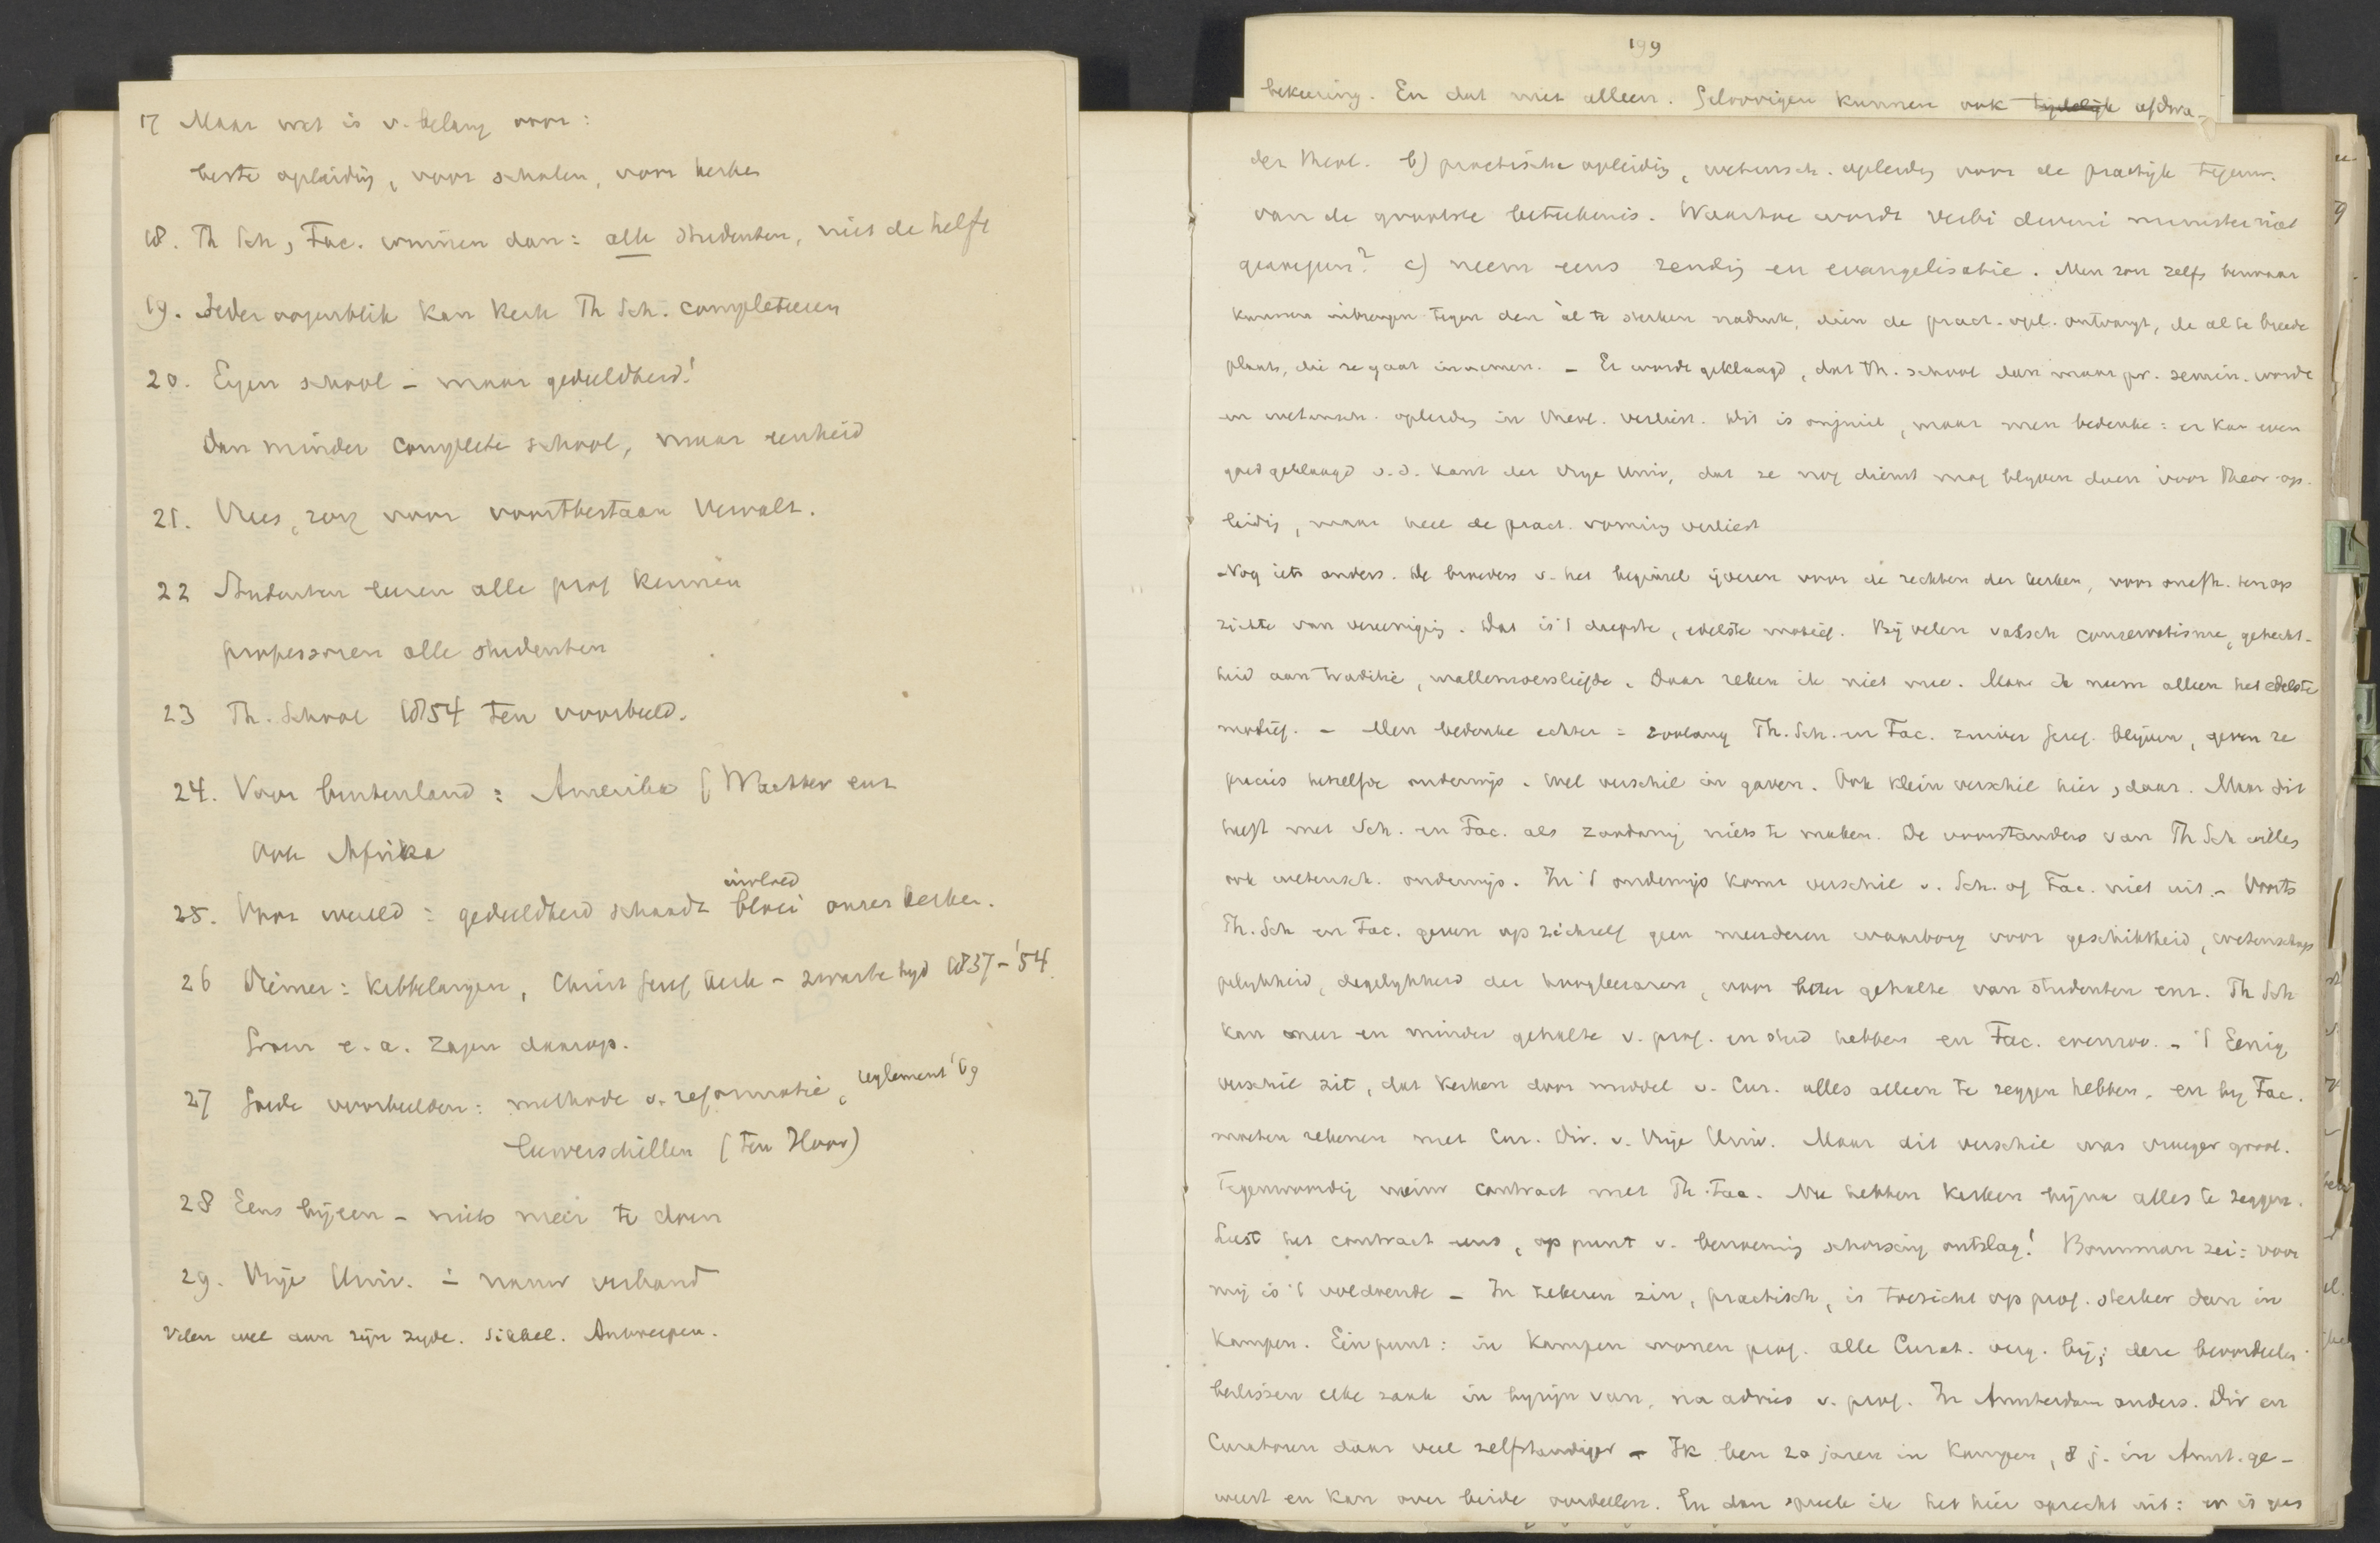 17 Maar wat is v. belang voor:
beste opleiding, voor scholen, voor kerken
18. Th Sch, Fac. winnen dan: alle studenten, niet de helft
19. Ieder oogenblik kan kerk Th Sch. completeeren
20. Eigen school - maar gedeeldheid!
Dan minder complete school, maar eenheid
21. Vrees, zorg voor voortbestaan vervalt.
22 Studenten leeren alle prof kennen
professoren alle studenten
23 Th. School 1854 ten voorbeeld.
24. Voor buitenland: Amerika (Wachter enz
Ook Afrika
25. Voor wereld: gedeeldheid schaadt bloei invloed onzer kerken.
26 Diemer: Kibbelaryen, Christ Geref Kerk - zwarte tijd 1837-'54.
Groen e.a. zagen daarop.
27 Goede voorbeelden: methode v. reformatie, reglement '69
Leerverschillen (ten Hoor)
28 Eens bijeen - niets meer te doen
29. Vrije Univ. - nauw verband
Velen wel aan zijn zyde. Sikkel. Antwerpen.
199
bekeering. En dat niet alleen. Geloovigen kunnen ook tijdelijk afdwa-
der theol. b) practische opleiding, wetensch. opleiding voor de practijk tegenw.
van de grootste beteekenis. Waartoe wordt verbi divini minister niet
geroepen? c) neem eens zending en evangelisatie. Men zou zelfs bezwaar
kunnen inbrengen tegen den àl te sterken nadruk, dien de pract. opl. ontvangt, de al te breede
plaats, die ze gaat innemen. - Er wordt geklaagd, dat Th. school dan maar pr. semin. wordt
en wetensch. opleiding in theol. verliest. Dit is onjuist, maar men bedenke: er kan even
goed geklaagd v.d. kant der Vrije Univ, dat ze nog dienst mag blijven doen voor theor. op-
leiding, maar heel de pract. vorming verliest
- Nog iets anders. De broeders v. het beginsel ijveren voor de rechten der kerken, voor onafh. ten op
zichte van vereeniging. Dat is 't diepste, edelste motief. Bij velen valsch conservatisme, gehecht-
heid aan traditie, . Daar reken ik niet mee. Maar ik neem alleen het edelste
motief. - Men bedenke echter: zoolang Th. Sch. en Fac. zuiver Geref. blijven, geven ze
precies hetzelfde onderwijs. Wel verschil in gaven. Ook klein verschil hier, daar. Maar dit
heeft met Sch. en Fac. als zoodanig niets te maken. De voorstanders van Th Sch willen
ook wetensch. onderwijs. In 't onderwijs komt verschil v. Sch. of Fac. niet uit. - Voorts
Th. Sch en Fac. geven op zichzelf geen meerderen waarborg voor geschiktheid, wetenschap-
pelijkheid, degelijkheid der hoogleeraren, voor beter gehalte van studenten enz. Th Sch
kan meer en minder gehalte v. prof. en stud hebben en Fac. evenzoo. - 't Eenig
verschil zit, dat kerken door middel v. Cur. alles alleen te zeggen hebben, en bij Fac.
moeten rekenen met Cur. Dir. v. Vrije Univ. Maar dit verschil was vroeger groot.
Tegenwoordig nieuw contract met Th. Fac. Nu hebben kerken bijna alles te zeggen.
Leest het contract eens, op punt v. benoeming schorsing ontslag! Bouwman zei: voor
mij is 't voldoende - In zekeren zin, practisch, is toezicht op prof. sterker dan in
Kampen. Een punt: in Kampen wonen prof. alle Curat. verg. bij; deze beoordeelen
beslissen elke zaak in bijzijn van, na advies v. prof. In Amsterdam anders. Dir en
Curatoren daar veel zelfstandiger - Ik ben 20 jaren in Kampen, 8 j. in Amst. ge-
weest en kan over beide oordeelen. En dan spreek ik het hier oprecht uit: er is